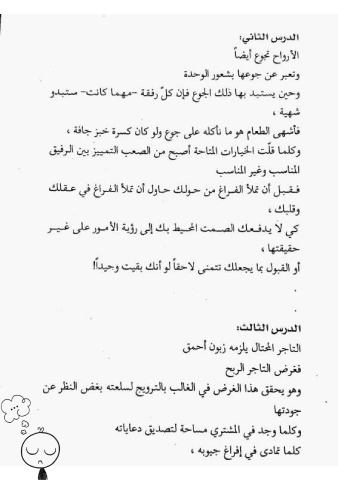 الدرس الثاني:
الأرواح تجوع أيضاً
وتعبر عن جوعها بشعور الوحدة
وحين يستبد بها ذلك الجوع فإن كلّ رفقة -مهما كانت- ستبدو
شهية ،
فأشهى الطعام هو ما نأكله على جوع ولو كان كسرة خبز جافة ،
وكلما قلّت الخيارات المتاحة أصبح من الصعب التمييز بين الرفيق
المناسب وغير المناسب
فقبل أن تملأ الفراغ من حولك حاول أن تملأ الفراغ في عقلك
وقلبك ،
كي لا يدفعك الصمت المحيط بك إلى رؤية الأمور على غير
حقيقتها ،
أو القبول بما يجعلك تتمنى لاحقاً لو أنك بقيت وحيداً!
.
.
الدرس الثالث:
التاجر المحتال يلزمه زبون أحمق
فغرض التاجر الربح
وهو يحقق هذا الغرض في الغالب بالترويج لسلعته بغض النظر عن
جودتها
وكلما وجد في المشتري مساحة لتصديق دعاياته
كلما تمادى في إفراغ جيوبه ،